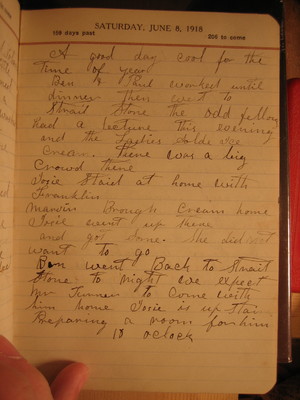 SATURDAY, JUNE 8, 1918
159 days past 206 to come
A good day cool for the
Time of year
Ben & Paul worked until
dinner then went to
Strait Stone the odd fellows
had a lecture this evening
and the Ladies Solde Ice
Cream. There was a big
Crowd there
Josie Staid at home with
Franklin
Marvin Brough Cream home
Josie went up there
and got some. She did not
want to go
Ben went Back to Strait
Stone to night we expect
Mr Turner to Come with
him home Josie is up Stairs
Preparing a room for him
10 oclock